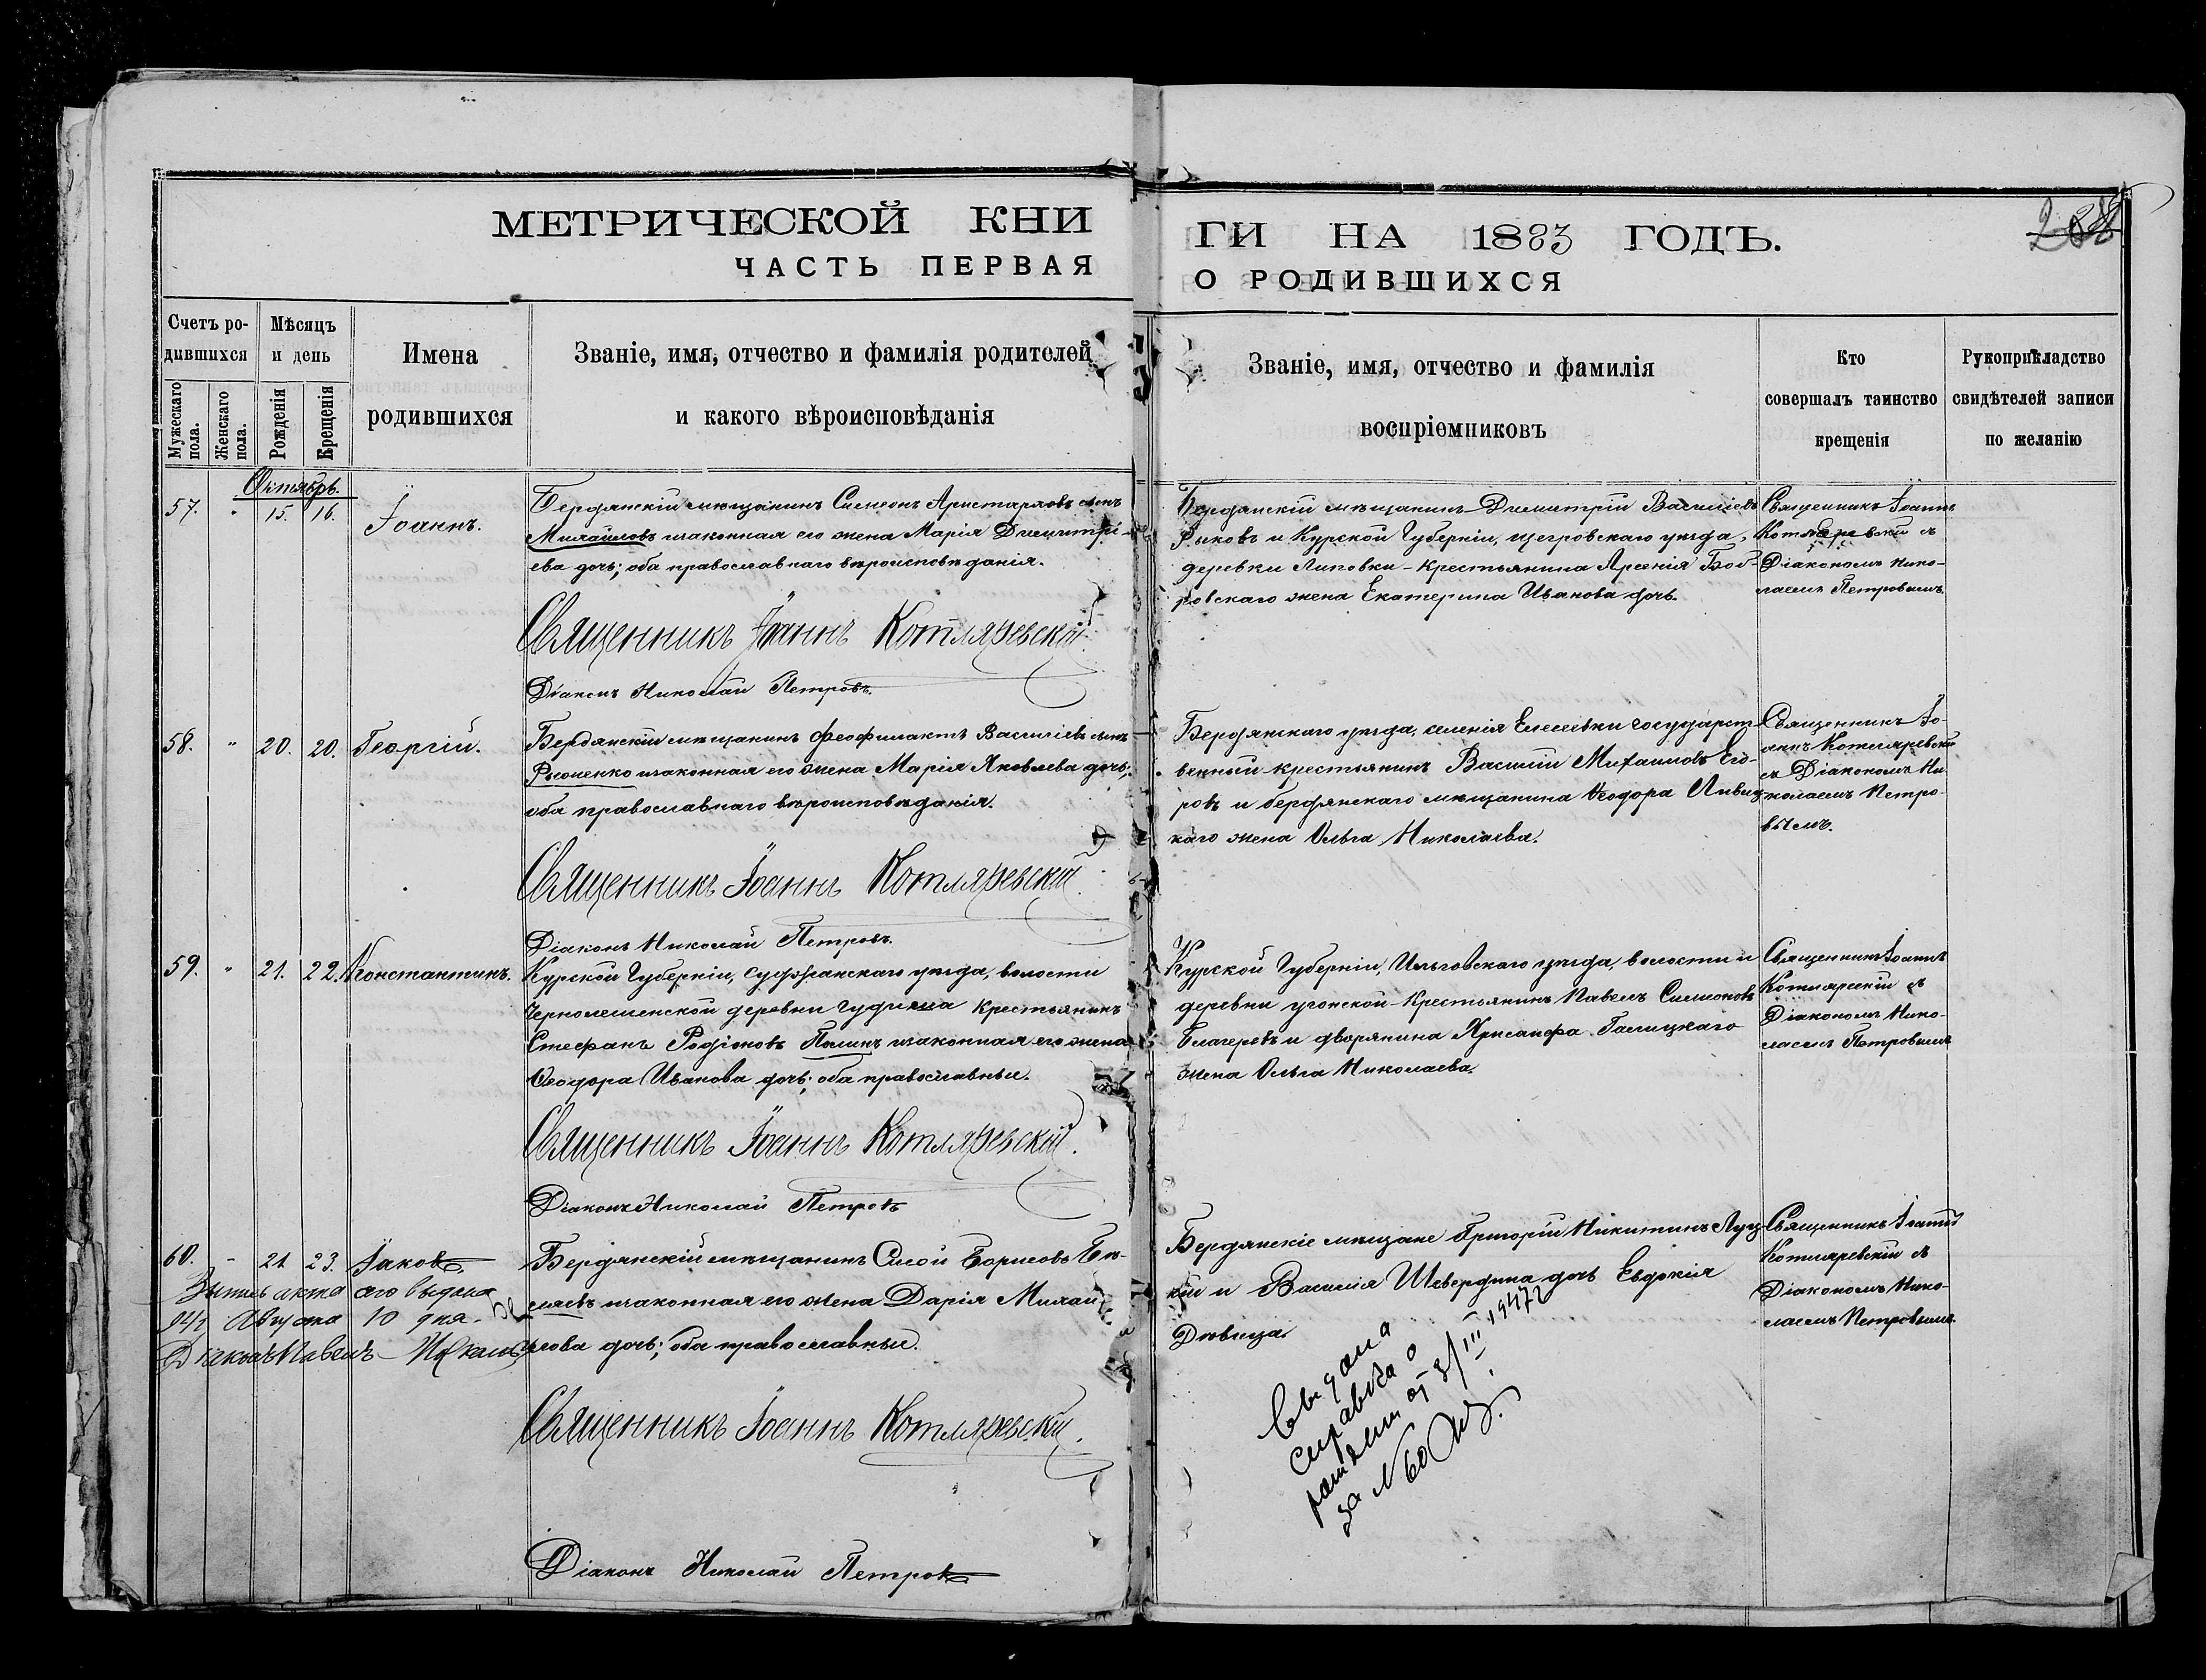 МЕТРИЧЕСКОЙ КНИ
ЧАСТЬ ПЕРВАЯ
ГИ НА 1883 ГОДЪ.
О РОДИВШИХСЯ
Счетъ родившихся
Мужескаго пола.
Женскаго пола.
Мѣсяцъ и день
Рожденія
Крещенія
Имена
родившихся
Званіе, имя, отчество и фамилія родителей
и какого вѣроисповѣданія
Званіе, имя, отчество и фамилія
воспріемниковъ
Кто
совершалъ таинство
крещенія
Рукоприкладство
свидѣтелей записи
по желанію
Октябрь.
57. " 15. 16. Іоаннъ.
Бердянскій мѣщанинъ Симеонъ Аристарховъ сынъ
Михайловъ изаконная его жена Марія Димитрі-
ева дочь; оба православнаго вѣроисповѣданія.
Священникъ Іоаннъ Котляревскій.
Діаконъ Николай Петровъ.
Бердянскій мѣщанинъ Димитрій Василіевъ
Рыковъ и Курской Губерніи, щегровскаго уѣзда,
деревки Липовки - Крестьянина Арсенія Боб-
ровскаго жена Екатерина Иванова дочь.
Священникъ Іоаннъ
Котляревскій съ
Діакономъ Нико-
лаемъ Петровымъ.
58. " 20. 20. Георгій.
Бердянскій мѣщанинъ Феофилактъ Василіевъ сынъ
изаконная его жена Марія Яковлева дочь;
оба православнаго вѣроисповѣданія.
Священникъ Іоаннъ Котляревскій.
Діаконъ Николай Петровъ.
Бердянскаго уѣзда, селенія Елесеевки государст-
венный крестьянинъ Василій Михаиловъ Его-
ровъ и бердянскаго мѣщанина Ѳеодора Ливиц-
каго жена Ольга Николаева.
Священникъ Іо-
аннъ Котляревскій
съ Діакономъ Ни-
колаемъ Петро-
вымъ.
59. " 21. 22. Константинъ.
Курской Губерніи, Суджанскаго уѣзда, волости
деревни крестьянинъ
Стефанъ Родіоновъ изаконная его жена
Ѳеодора Иванова дочь; оба православные.
Священникъ Іоаннъ Котляревскій.
Діаконъ Николай Петровъ
Курской Губерніи, Ильговскаго уѣзда, волости и
деревни угонской - Крестьянинъ Павелъ Симеоновъ
и дворянина Хрисанфа Галицкаго
жена Ольга Николаева.
Священникъ Іоаннъ
Котлярескій съ
Діакономъ Нико-
лаемъ Петровымъ
60. - 21. 23. Іаковъ
Бердянскій мѣщанинъ Сысой Борисовъ Бѣ-
ляевъ изаконная его жена Дарія Михаи-
лова дочь; оба православные.
Священникъ Іоаннъ Котляревскій.
Діаконъ Николай Петровъ
Бердянскіе мѣщане Григорій Никитинъ Луц-
кій и Василія Шевердина дочь Евдокія
Дѣвица.
Священникъ Іоаннъ
Котляревскій съ
Діакономъ Нико-
лаемъ Петровымъ.
выдана
Августа 10 дня.
Павелъ
Выдана
справка о
от 8/III 1947 г.
за № 60